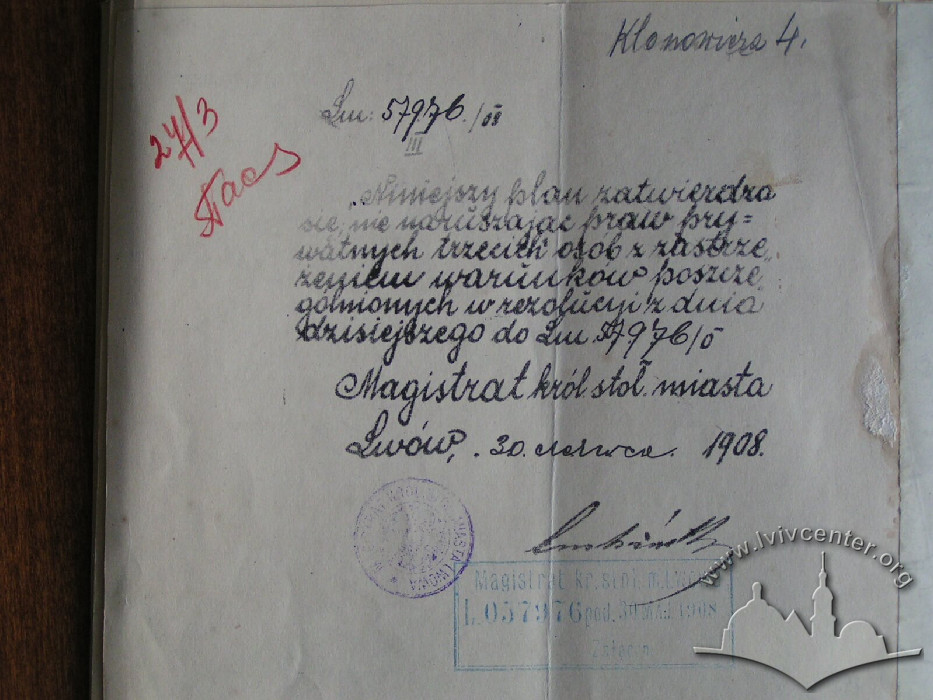 Klonowicza 4.
Lm: 57976./08
III
27/3
Niniejszy plan zatwierdza
się, nie naruszając praw pry=
watnych trzecich osób z zastrze„
żeniem warunków poszcze
gólnionych w rezolucyi z dnia
dzisiejszego do Lm 57976/8
Magistrat król. stoł. miasta
Lwów, . 30. czerwca . 1908.
Magistrat kr. stoł. m. Lwowa
L. 057976 pod. 30 MAJ 1908
www.lvivcenter.org